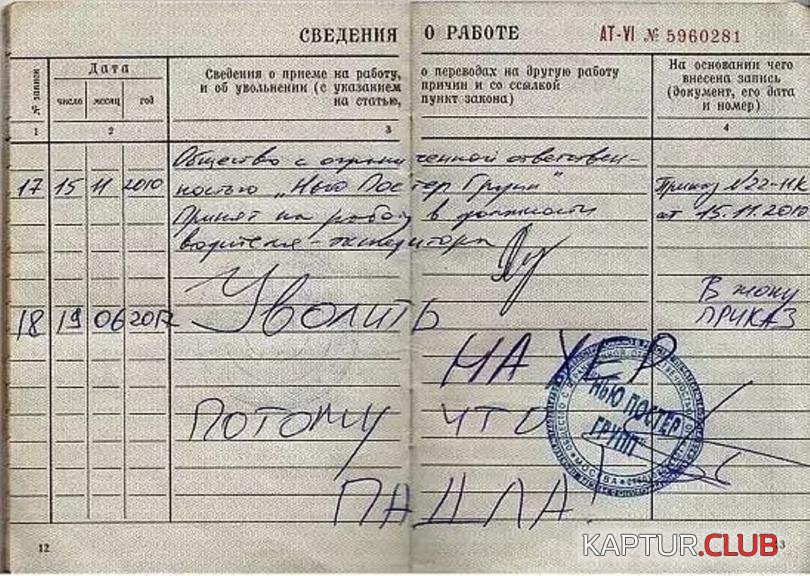 СВЕДЕНИЯ О РАБОТЕ АТ-VI № 5960281
№ записи Дата Сведения о приеме на работу, о переводах на другую работу На основании чего
и об увольнении (с указанием причин и со ссылкой внесена запись
число месяц год на статью, пункт закона) (документ, его дата
и номер)
1 2 3 4
Общество с ограниченной ответствен-
17 15 11 2010 ностью „Нью Постер Групп" Приказ №22-НК
Принят на работу в должности от 15.11.2010
водителя-экспедитора
В жопу
18 19 06 2012 Уволить ПРИКАЗ
НА ХЕР
ПОТОМУ ЧТО
ПАДЛА!
НЬЮ ПОСТЕР
ГРУПП
МОСКВА
12 13
KAPTUR.CLUB